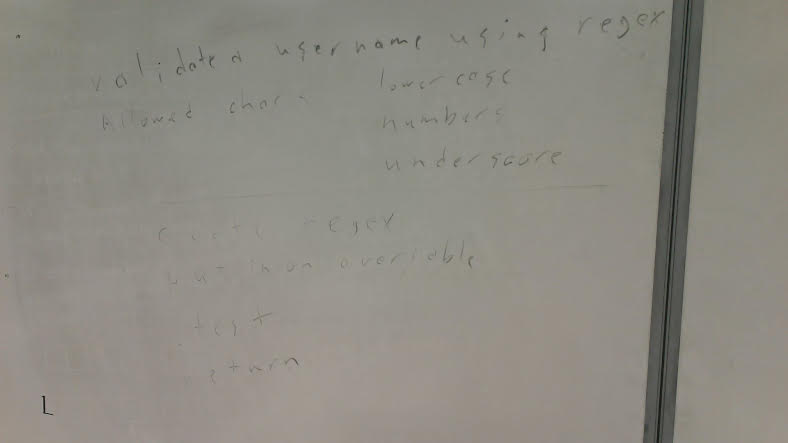 validate a username using regex
Allowed chars lowercase
numbers
underscore
create regex
put in on averiable
test
return